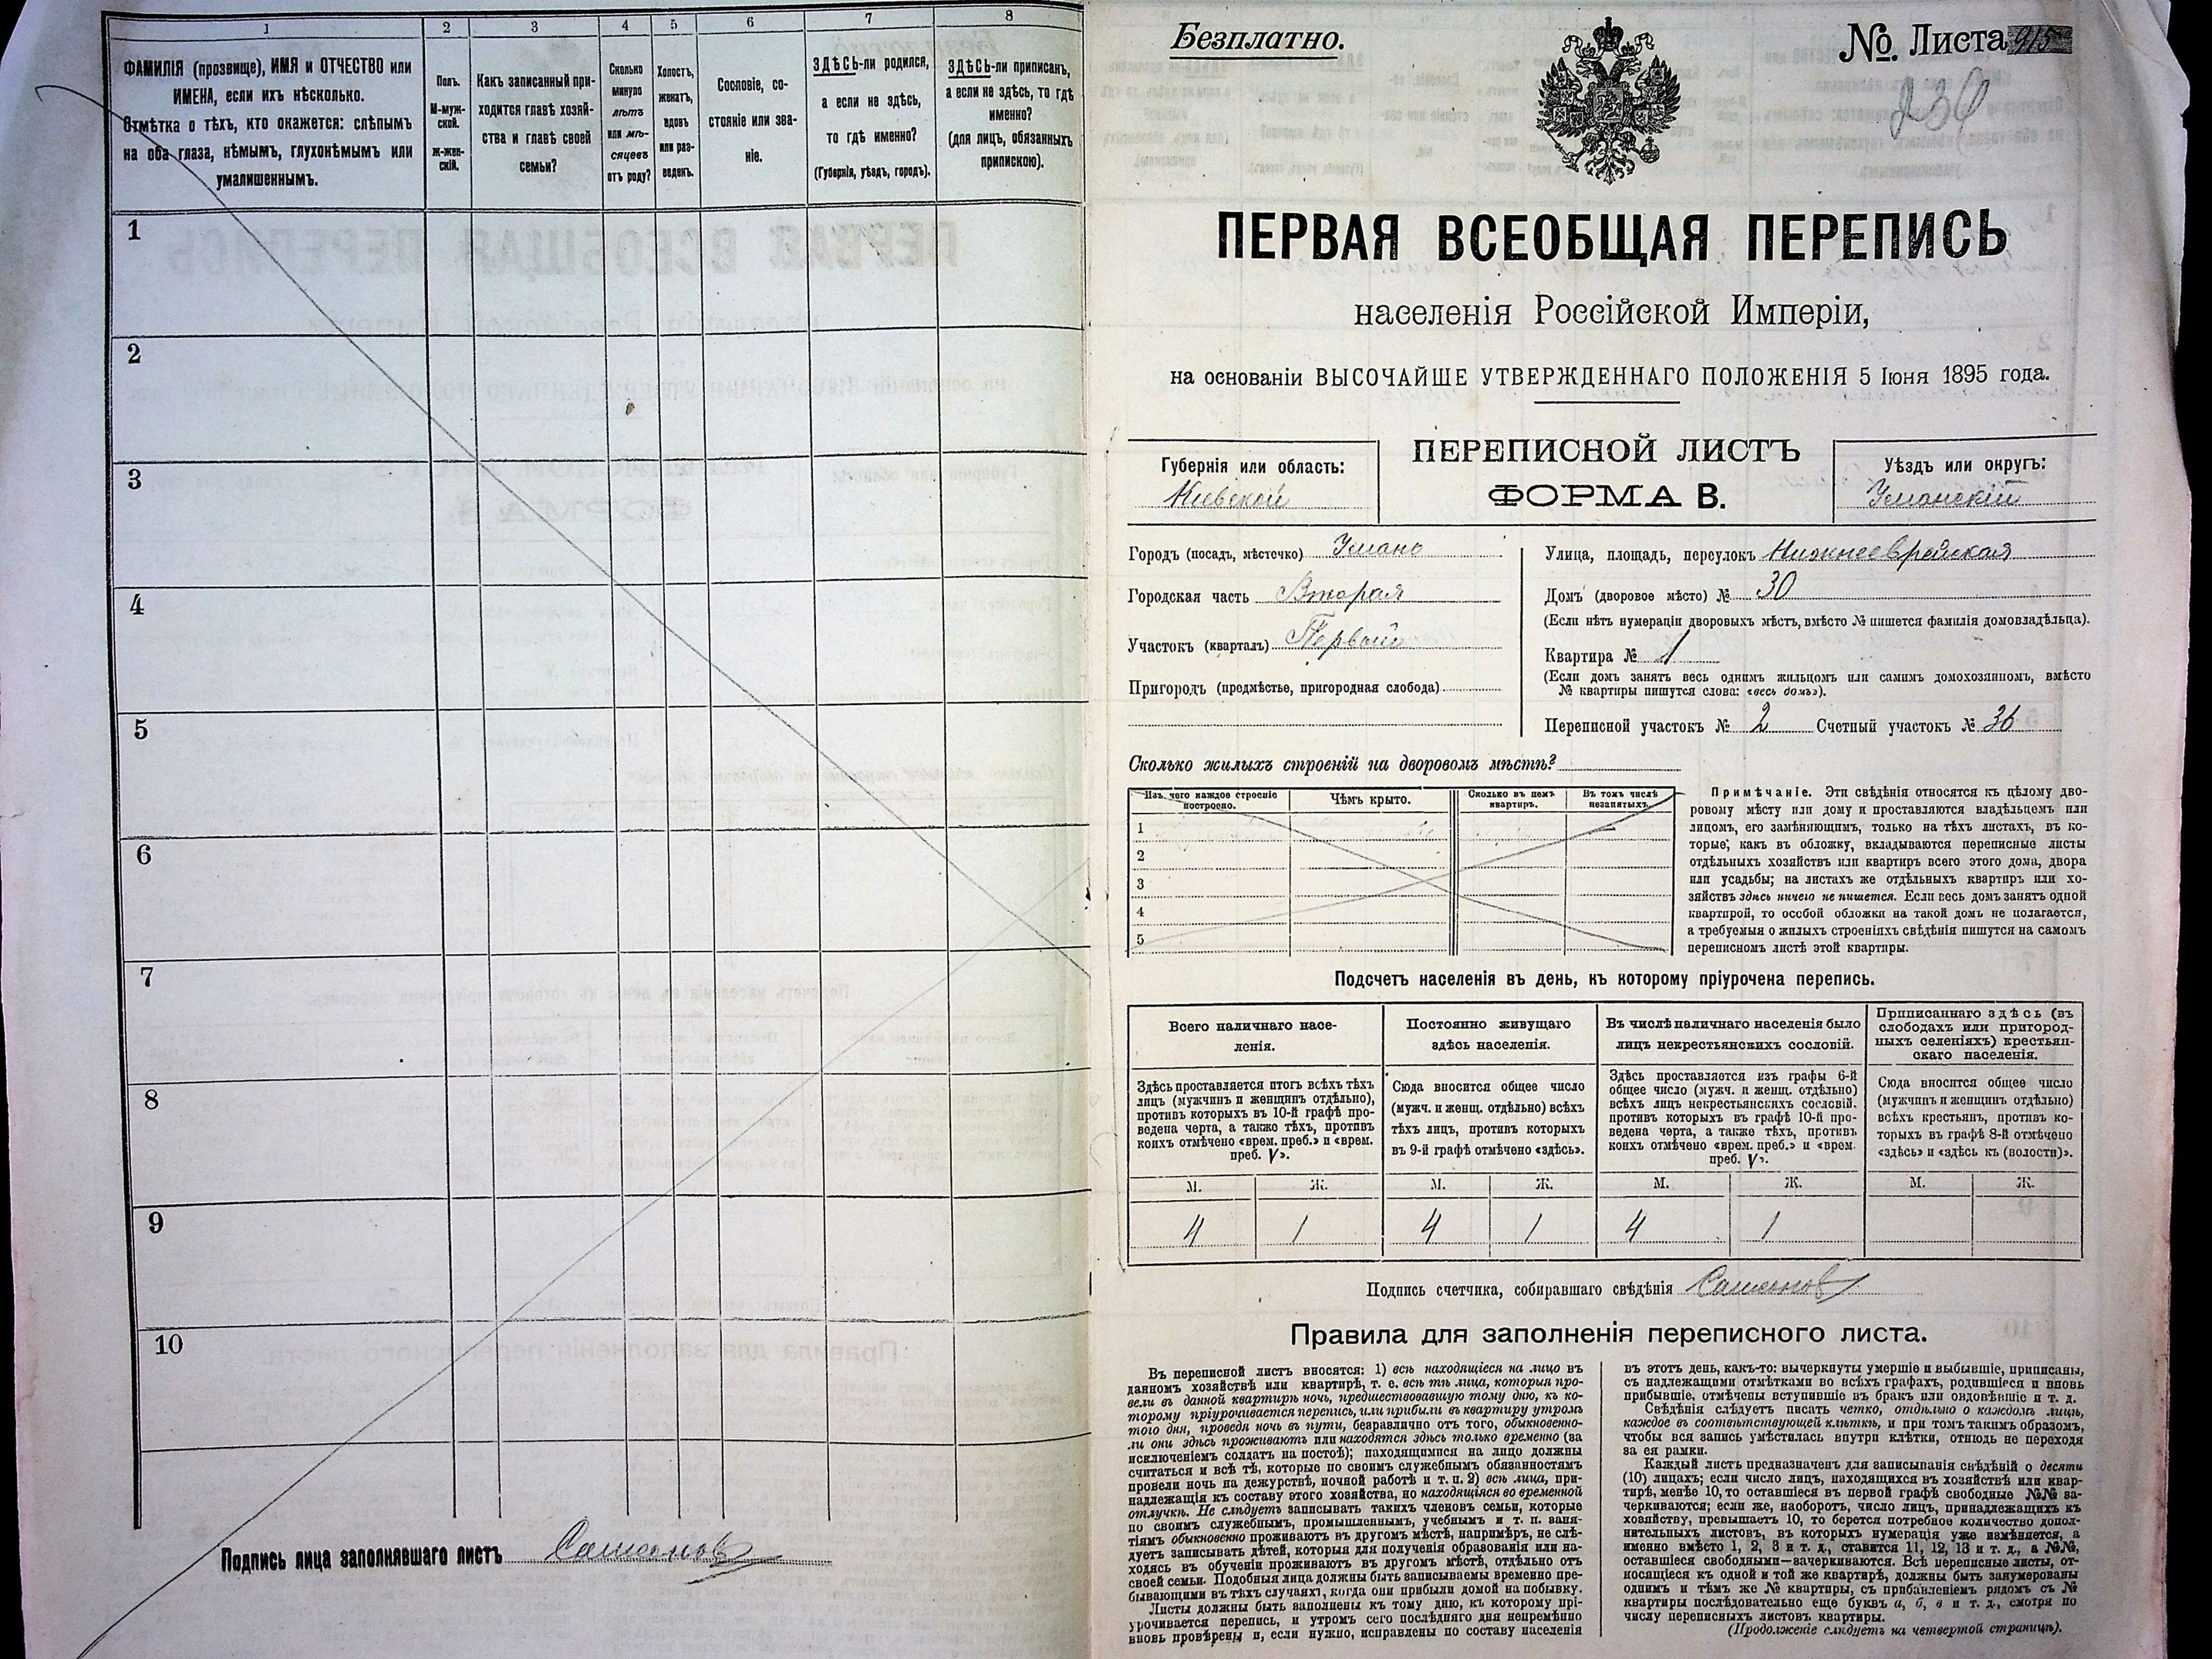 1 2 3 4 5 6 7 8
ФАМИЛІЯ (прозвище), ИМЯ и ОТЧЕСТВО или
ИМЕНА, если ихъ нѣсколько.
Отмѣтка о тѣхъ, кто окажется: слѣпымъ
на оба глаза, нѣмымъ, глухонѣмымъ или
умалишеннымъ.
Полъ.
М-муж-
ской.
Ж-жен-
скій.
Какъ записанный при-
ходится главѣ хозяй-
ства и главѣ своей
семьи?
Сколько
минуло
лѣтъ
или мѣ-
сяцевъ
отъ роду?
Холостъ,
женатъ,
вдовъ
или раз-
веденъ.
Сословіе, со-
стояніе или зва-
ніе.
ЗДѢСЬ-ли родился,
а если не здѣсь,
то гдѣ именно?
(Губернія, уѣздъ, городъ).
ЗДѢСЬ-ли приписанъ,
а если не здѣсь, то гдѣ
именно?
(для лицъ, обязанныхъ
припискою).
1
2
3
4
5
6
7
8
9
10
Подпись лица заполнявшаго листъ
Безплатно.
№ Листа 915
236
ПЕРВАЯ ВСЕОБЩАЯ ПЕРЕПИСЬ
населенія Россійской Имперіи,
на основаніи ВЫСОЧАЙШЕ УТВЕРЖДЕННАГО ПОЛОЖЕНІЯ 5 Іюня 1895 года.
Губернія или область:
Кіевской
ПЕРЕПИСНОЙ ЛИСТЪ
ФОРМА В.
Уѣздъ или округъ:
Уманскій
Городъ (посадъ, мѣстечко) Умань
Городская часть Вторая
Участокъ (кварталъ) Первый
Пригородъ (предмѣстье, пригородная слобода)
Улица, площадь, переулокъ Нижнееврейская
Домъ (дворовое мѣсто) № 30
(Если нѣтъ нумераціи дворовыхъ мѣстъ, вмѣсто № пишется фамилія домовладѣльца).
Квартира № 1
(Если домъ занятъ весь однимъ жильцомъ или самимъ домохозяиномъ, вмѣсто
№ квартиры пишутся слова: «весь домъ»).
Переписной участокъ № 2 Счетный участокъ № 36
Сколько жилыхъ строеній на дворовомъ мѣстѣ?
Изъ чего каждое строеніе
построено.
Чѣмъ крыто.
Сколько въ немъ
квартиръ.
Въ томъ числѣ
незанятыхъ.
1
2
3
4
5
Примѣчаніе. Эти свѣдѣнія относятся къ цѣлому дво-
ровому мѣсту или дому и проставляются владѣльцемъ или
лицомъ, его замѣняющимъ, только на тѣхъ листахъ, въ ко-
торые, какъ въ обложку, вкладываются переписные листы
отдѣльныхъ хозяйствъ или квартиръ всего этого дома, двора
или усадьбы; на листахъ же отдѣльныхъ квартиръ или хо-
зяйствъ здѣсь ничего не пишется. Если весь домъ занятъ одной
квартирой, то особой обложки на такой домъ не полагается,
а требуемыя о жилыхъ строеніяхъ свѣдѣнія пишутся на самомъ
переписномъ листѣ этой квартиры.
Подсчетъ населенія въ день, къ которому пріурочена перепись.
Всего наличнаго насе-
ленія.
Здѣсь проставляется итогъ всѣхъ тѣхъ
лицъ (мужчинъ и женщинъ отдѣльно),
противъ которыхъ въ 10-й графѣ про-
ведена черта, а также тѣхъ, противъ
коихъ отмѣчено «врем. преб.» и «врем.
преб. V».
Постоянно живущаго
здѣсь населенія.
Сюда вносится общее число
(мужч. и женщ. отдѣльно) всѣхъ
тѣхъ лицъ, противъ которыхъ
въ 9-й графѣ отмѣчено «здѣсь».
Въ числѣ наличнаго населенія было
лицъ некрестьянскихъ сословій.
Здѣсь проставляется изъ графы 6-й
общее число (мужч. и женщ. отдѣльно)
всѣхъ лицъ некрестьянскихъ сословій,
противъ которыхъ въ графѣ 10-й про-
ведена черта, а также тѣхъ, противъ
коихъ отмѣчено «врем. преб.» и «врем.
преб. V».
Приписаннаго здѣсь (въ
слободахъ или пригород-
ныхъ селеніяхъ) крестьян-
скаго населенія.
Сюда вносится общее число
(мужчинъ и женщинъ отдѣльно)
всѣхъ крестьянъ, противъ ко-
торыхъ въ графѣ 8-й отмѣчено
«здѣсь» и «здѣсь къ (волости)».
М. Ж. М. Ж. М. Ж. М. Ж.
4 1 4 1 4 1
Подпись счетчика, собиравшаго свѣдѣнія
Правила для заполненія переписного листа.
Въ переписной листъ вносятся: 1) всѣ находящіеся на лицо въ
данномъ хозяйствѣ или квартирѣ, т. е. всѣ тѣ лица, которыя про-
вели въ данной квартирѣ ночь, предшествовавшую тому дню, къ ко-
торому пріурочивается перепись, или прибыли въ квартиру утромъ
того дня, проведя ночь въ пути, безразлично отъ того, обыкновенно-
ли они здѣсь проживаютъ или находятся здѣсь только временно (за
исключеніемъ солдатъ на постоѣ); находящимися на лицо должны
считаться и всѣ тѣ, которые по своимъ служебнымъ обязанностямъ
провели ночь на дежурствѣ, ночной работѣ и т. п. 2) всѣ лица, при-
надлежащія къ составу этого хозяйства, но находящіяся во временной
отлучкѣ. Не слѣдуетъ записывать такихъ членовъ семьи, которые
по своимъ служебнымъ, промышленнымъ, учебнымъ и т. п. заня-
тіямъ обыкновенно проживаютъ въ другомъ мѣстѣ, напримѣръ, не слѣ-
дуетъ записывать дѣтей, которыя для полученія образованія или на-
ходясь въ обученіи проживаютъ въ другомъ мѣстѣ, отдѣльно отъ
своей семьи. Подобныя лица должны быть записываемы временно пре-
бывающими въ тѣхъ случаяхъ, когда они прибыли домой на побывку.
Листы должны быть заполнены къ тому дню, къ которому прі-
урочивается перепись, и утромъ сего послѣдняго дня непремѣнно
вновь провѣрены и, если нужно, исправлены по составу населенія
въ этотъ день, какъ-то: вычеркнуты умершіе и выбывшіе, приписаны,
съ надлежащими отмѣтками во всѣхъ графахъ, родившіеся и вновь
прибывшіе, отмѣчены вступившіе въ бракъ или овдовѣвшіе и т. д.
Свѣдѣнія слѣдуетъ писать четко, отдѣльно о каждомъ лицѣ,
каждое въ соотвѣтствующей клѣткѣ, и при томъ такимъ образомъ,
чтобы вся запись умѣстилась внутри клѣтки, отнюдь не переходя
за ея рамки.
Каждый листъ предназначенъ для записыванія свѣдѣній о десяти
(10) лицахъ; если число лицъ, находящихся въ хозяйствѣ или квар-
тирѣ, менѣе 10, то оставшіеся въ первой графѣ свободные №№ за-
черкиваются; если же, наоборотъ, число лицъ, принадлежащихъ къ
хозяйству, превышаетъ 10, то берется потребное количество допол-
нительныхъ листовъ, въ которыхъ нумерація уже измѣняется, а
именно вмѣсто 1, 2, 3 и т. д., ставится 11, 12, 13 и т. д., а №№,
оставшіеся свободными—зачеркиваются. Всѣ переписные листы, от-
носящіеся къ одной и той же квартирѣ, должны быть занумерованы
однимъ и тѣмъ же № квартиры, съ прибавленіемъ рядомъ съ №
квартиры послѣдовательно еще буквъ а, б, в и т. д., смотря по
числу переписныхъ листовъ квартиры.
(Продолженіе слѣдуетъ на четвертой страницѣ).